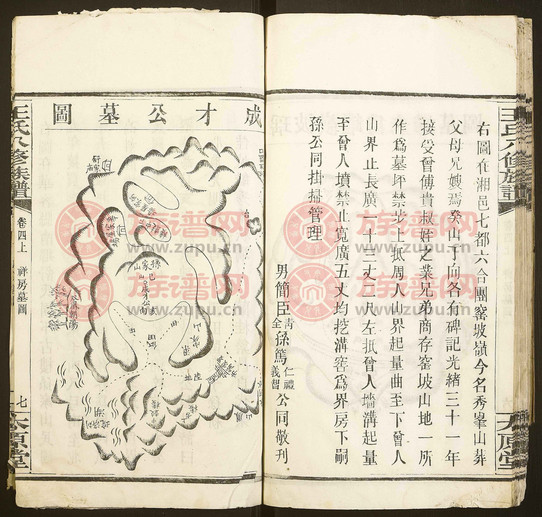 王氏八修族譜
太原堂
右圖在湘邑七都六合團窰坡嶺今名秀峯山葬
父母兄嫂焉癸山丁向各有碑記光緒三十一年
接受曾傅貴叔姪之業兄弟商存窰坡山地一所
作爲墓坪禁步上抵周人山界起量曲至下曾人
山界止長廣一十三丈二尺左抵曾人墻溝起量
至曾人墳禁止寬廣五丈均挖溝窖爲界房下嗣
孫公同掛掃管理
男簡臣仝孫篤
公同敬刊
成才公墓圖
王氏八修族譜
卷四上
祥房墓圖
七
太原堂
族谱网
http://www.zupu.cn